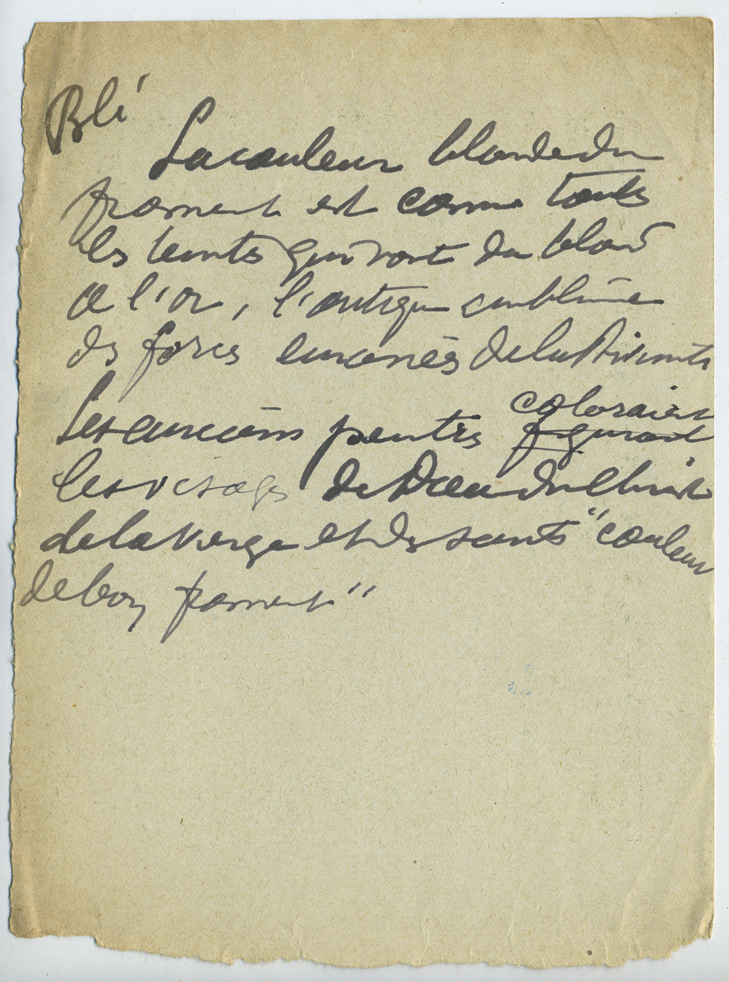 Blé
La couleur blonde du
froment est comme toutes
les teintes qui vont du blanc
à l'or, l'antique emblème
des forces émanées de la Divinité
Les anciens peintres coloraient
figuraient
les visages de Dieu du Christ
de la Vierge et des saints "couleur
de bon froment"